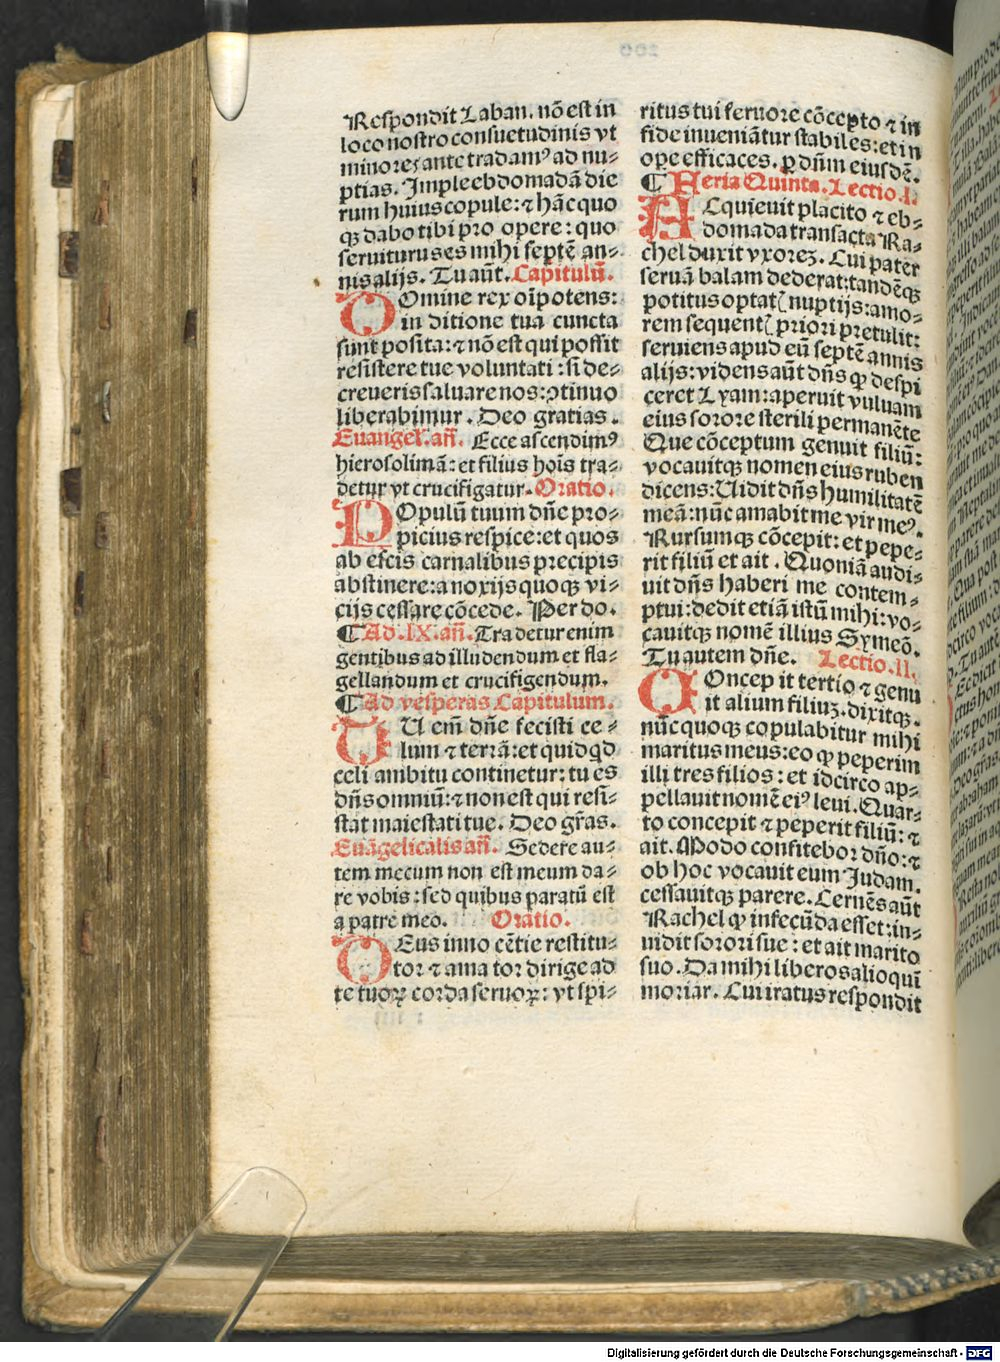 Respondit Laban. nõ est in
loco nostro consuetudinis vt
minorez ante tradamꝰ ad nu⸗
ptias. Imple ebdomadã die
rum huius copule: ⁊ hãc quo
qꝫ dabo tibi pro opere: quo
seruiturus es mihi septẽ an⸗
nis alijs. Tu aũt. Capitulũ.
DOmine rex oĩpotens:
in ditione tua cuncta
sunt posita: ⁊ nõ est qui possit
resistere tue voluntati: si de⸗
creueris saluare nos: ꝯtinuo
liberabimur. Deo gratias.
Euangel'. añ. Ecce ascendimꝰ
hierosolimã: et filius hoĩs tra⸗
detur vt crucifigatur. Oratio.
POpulũ tuum dñe pro⸗
picius respice: et quos
ab escis carnalibus precipis
abstinere: a noxijs quoqꝫ vi⸗
cijs cessare cõcede. Per do.
¶ Ad .IX. añ. Tradetur enim
gentibus ad illudendum et fla⸗
gellandum et crucifigendum.
¶ Ad vesperas Capitulum.
TU em̃ dñe fecisti ce⸗
lum ⁊ terrã: et quid qd
celi ambitu continetur: tu es
dñs omniũ: ⁊ non est qui resi⸗
stat maiestati tue. Deo gr̃as.
Euãgelicalis añ. Sedere au⸗
tem mecum non est meum da⸗
re vobis: sed quibus paratũ est
a patre meo. Oratio.
DEus inno cẽtie restitu⸗
tor ⁊ ama tor dirige ad
te tuoꝝ corda seruoꝝ: vt spi⸗
ritus tui feruore cõcepto ⁊ in
fide inueniãtur stabiles: et in
ope efficaces. ꝑ dñm eiusdẽ.
¶ Feria Quinta. Lectio .I.
ACquieuit placito ⁊ eb⸗
domada transacta Ra⸗
chel duxit vxorez. Cui pater
seruã balam dederat: tandẽqꝫ
potitus optatꝭ nuptijs: amo⸗
rem sequentꝭ priori pretulit:
seruiens apud eũ septẽ annis
alijs: videns aũt dñs ꝙ despi
ceret Lyam: aperuit vuluam
eius sorore sterili permanẽte
Que cõceptum genuit filiũ:
vocauitqꝫ nomen eius ruben
dicens: Uidit dñs humilitatẽ
meã: nũc amabit me vir meꝰ.
Rursumqꝫ cõcepit: et pepe⸗
rit filiũ et ait. Quoniã audi⸗
uit dñs haberi me contem⸗
ptui: dedit etiã istũ mihi: vo⸗
cauitqꝫ nomẽ illius Symeõ.
Tu autem dñe. Lectio .II.
COncep it tertio ⁊ genu
it alium filiuz. dixitqꝫ.
nũc quoqꝫ copulabitur mihi
maritus meus: eo ꝙ peperim
illi tres filios: et idcirco ap⸗
pellauit nomẽ eiꝰ leui. Quar⸗
to concepit ⁊ peperit filiũ: ⁊
ait. Modo confitebor dño: ⁊
ob hoc vocauit eum Judam.
cessauitqꝫ parere. Cernẽs aũt
Rachel ꝙ infecũda esset: in⸗
uidit sorori sue: et ait marito
suo. Da mihi liberos alioqui
moriar. Cui iratus respondit
Digitalisierung gefördert durch die Deutsche Forschungsgemeinschaft - DFG